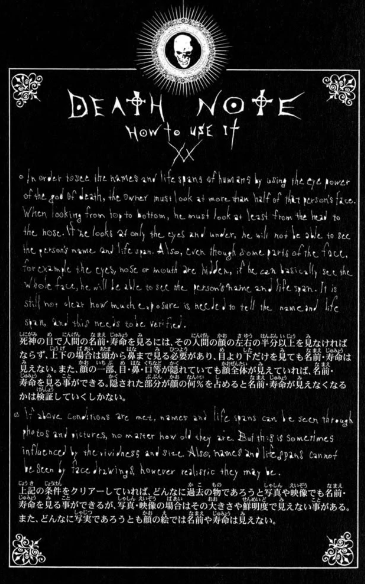 DEATH NOTE
HOW to USE IT
XX
In order to see the names and life spans of humans by using the eye power
of the god of death, the owner must look at more than half of that person's face.
When looking from top to bottom, he must look at least from the head to
the nose. If he looks at only the eyes and under, he will not be able to see
the person's name and life span. Also, even though some parts of the face,
for example the eyes, nose or mouth are hidden, if he can basically see the
whole face, he will be able to see the person's name and life span. It is
still not clear how much exposure is needed to tell the name and life
span, and this needs to be verified.
死神の目で人間の名前・寿命を見るには、その人間の顔の左右の半分以上を見なければ
ならず、上下の場合は頭から鼻まで見る必要があり、目より下だけを見ても名前・寿命は
見えない。また、顔の一部、目・鼻・口等が隠れていても顔全体が見えていれば、名前・
寿命を見る事ができる。隠された部分が顔の何%を占めると名前・寿命が見えなくなる
かは検証していくしかない。
If above conditions are met, names and life spans can be seen through
photos and pictures, no matter how old they are. But this is sometimes
influenced by the vividness and size. Also, names and life spans cannot
be seen by face drawings, however realistic they may be.
上記の条件をクリアーしていれば、どんなに過去の物であろうと写真や映像でも名前・
寿命を見る事ができるが、写真・映像の場合はその大きさや鮮明度で見えない事がある。
また、どんなに写実であろうとも顔の絵では名前や寿命は見えない。